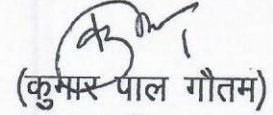 (कुमार पाल गौतम)